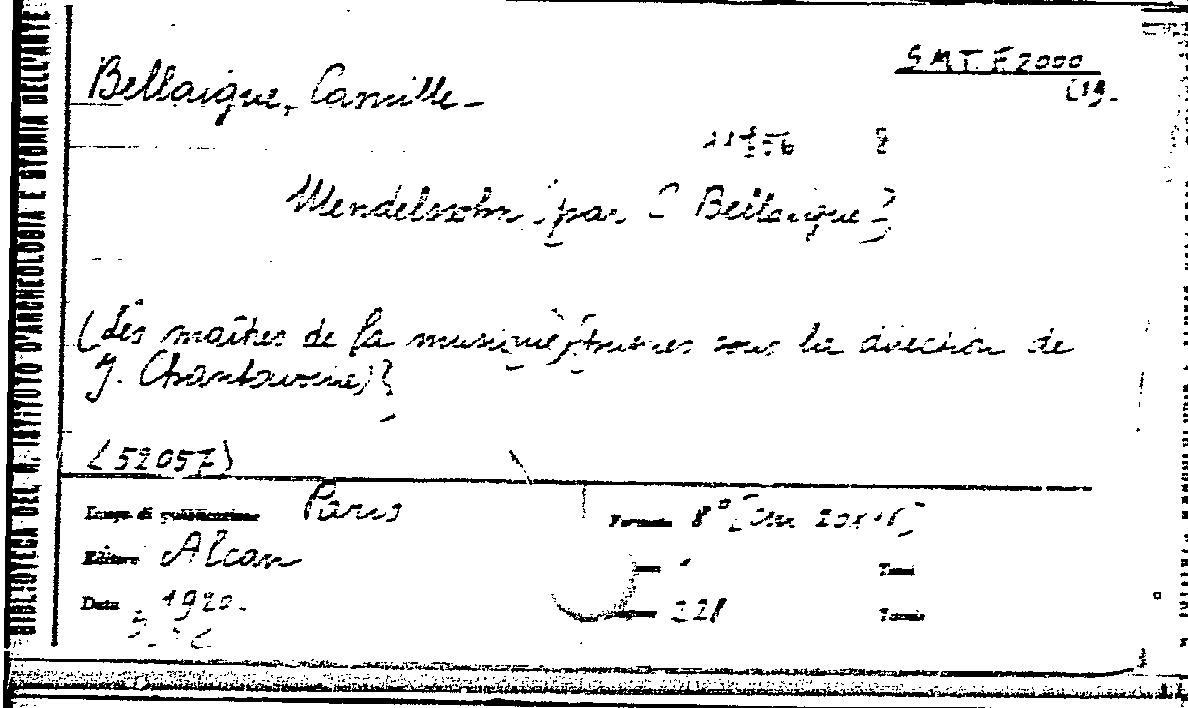 BIBLIOTECA DEL R. ISTITUTO D'ARCHEOLOGIA E STORIA DELL'ARTE
S.M.T. F 2000
(19.
Bellaigue, Camille -
Mendelssohn [par C Bellaigue]
(Les maîtres de la musique) [publiées sous la direction de
J. Chantavoine)]
(52057)
Luogo di pubblicazione Paris
Formato 8° [cm
Editore Alcan
Tomi
Data 1920.
221
Tavole